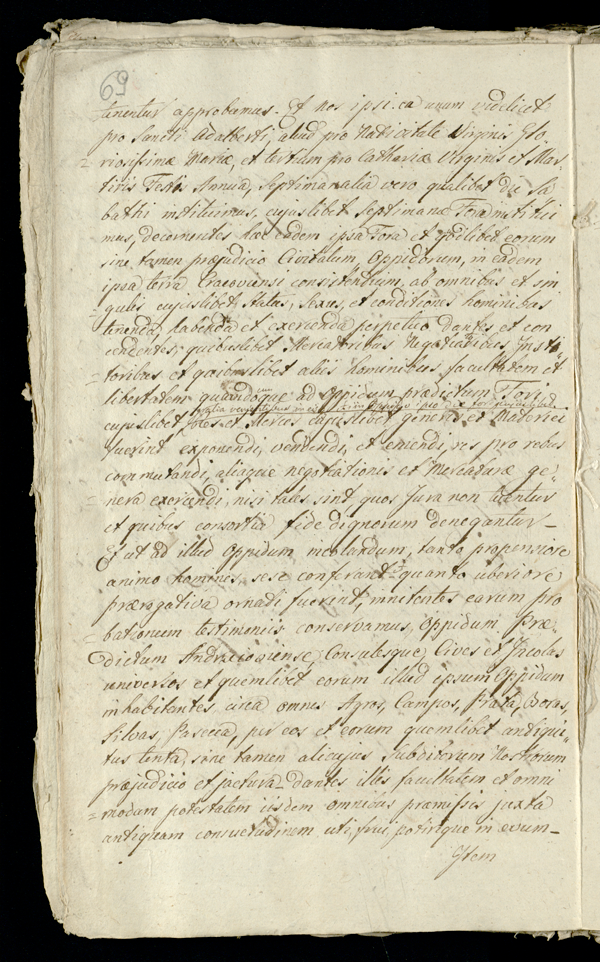 69
tinentur approbamus. Et nos ipsi ea unum videlicet
pro Sancti Adalberti, aliud pro Nativitate Virginis Glo
riosissimæ Mariæ, et tertium pro Catharinæ Virginis et Mar
tiris Festis Annua, Septimanalia vero qualibet die Sa
bathi instituimus, cujuslibet Septimanæ Fora
mus, decernentes hæc eadem ipsa Fora et quodlibet eorum
sine tamen præjudicio Civitatum, Oppidorum, in eadem
ipsa terra Cracoviensi consistentium, ab omnibus et sin
gulis cujuslibet status, Sexus, et conditionis hominibus
tenenda, habenda et exercenda perpetuo Dantes et con
cendentes, quibuslibet Mercatoribus Negotiatoribus, Insti
toribus et quibuslibet aliis hominibus facultatem et
libertatem quandoque ad Oppidum prædictum Fori
cujuslibet Res et Merces cujuslibet generis et Materiei
fuerint exponendi, vendendi, et emendi, res pro rebus
commutandi, aliaque negotiationis et Mercaturæ ge-
nera exercendi, nisi tales sint quos Jura non
et quibus consortia fide dignorum denegantur
Et ut ad illud Oppidum incolandum, tanto propensiore
animo homines, sese conferant quanto uberiore
prærogativa ornadi fuerint, innitentes earum pro
bationum testimoniis conservamus, Oppidum Præ-
dictum Andrzeioviense, Consulesque, Cives et Incolas
universos et quemlibet eorum illud ipsum Oppidum
inhabitantes circa omnes Agros, Campos, Prata, Boras,
Silvas, Pascua, per eos et eorum quemlibet antiqui-
tus tenta, sine tamen alicujus Subditorum Nostrorum
præjudicio et jactura. Dantes illis facultatem et omni
modam potestatem iisdem omnibus præmissis juxta
antiquam consuetudinem uti, frui potirique in ævum
Item